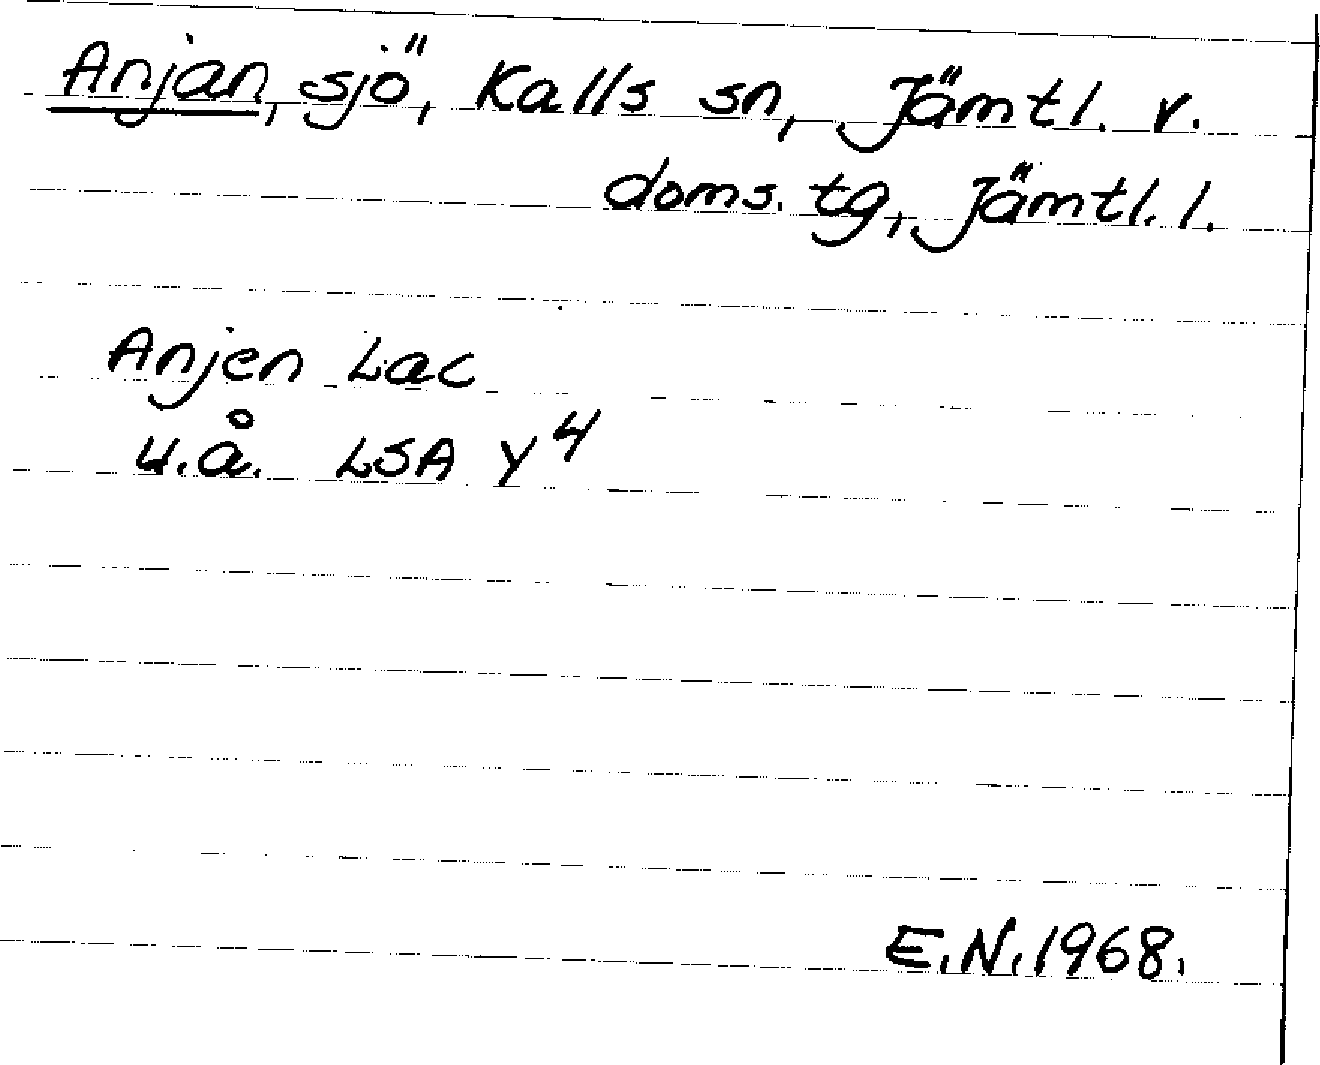 Anjan, sjö, Kalls sn, Jämtl. v.
doms. tg, Jämtl. l.
Anjen Lac
u.å. LSA Y4
E.N. 1968.